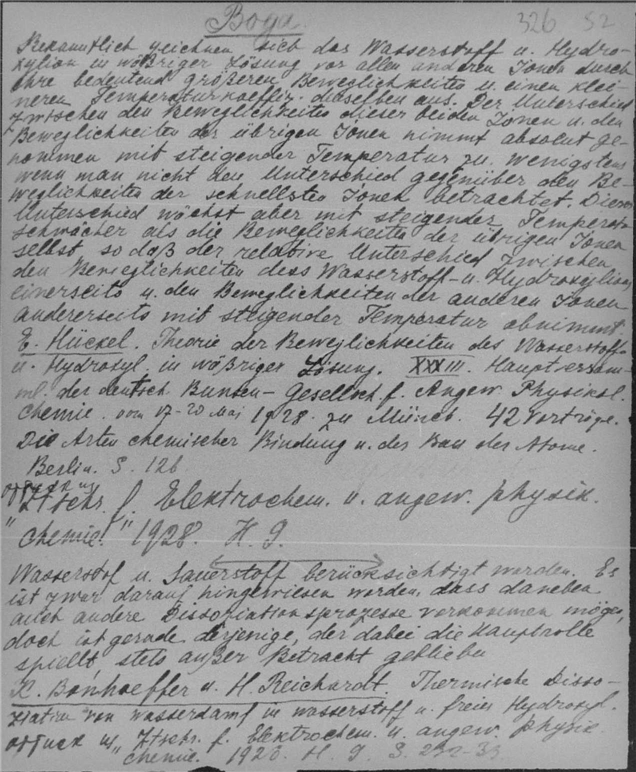 Вода
326 52
Bekanntlich zeichnen sich das Wasserstoff u. Hydro-
xylion in wäßriger Lösung vor allen anderen Ionen durch
ihre bedeutend größeren Beweglichkeiten u. einen klei-
neren Temperaturkoeffiz. dieselben aus. Der Unterschied
zwischen den Beweglichkeiten dieser beiden Ionen u. den
Beweglichkeiten der übrigen Ionen nimmt absolut ge-
nommen mit steigender Temperatur zu, wenigstens
wenn man nicht den Unterschied gegenüber den Be-
weglichkeiten der schnellsten Ionen betrachtet. Dieser
Unterschied wächst aber mit steigender Temperatur
schwächer als die Beweglichkeiten der übrigen Ionen
selbst, so daß der relative Unterschied zwischen
den Beweglichkeiten des Wasserstoff- u. Hydroxylions
einerseits u. den Beweglichkeiten der anderen Ionen
andererseits mit steigender Temperatur abnimmt
E. Hückel. Theorie der Beweglichkeiten des Wasserstoff-
u. Hydroxyl. in wäßriger Lösung. XXXIII. Hauptversam-
ml. der deutsch. Bunsen-Gesellsch. f. Angew. Physikal.
Chemie. vom 17-20 Mai 1928. zu Münch. 42 Vorträge.
Die Arten chemischer Bindung u. der Bau der Atome.
Berlin. S. 126
оттиск из
"Ztschr. f. Elektrochem. u. angew. physik.
Chemie." 1928. H. 9.
Wasserstof u. Sauerstoff berücksichtigt werden. Es
ist zwar darauf hingewiesen worden, dass daneben
auch andere Dissoziationsprozesse vorkommen mögen,
doch ist gerade derjenige, der dabei die Hauptrolle
spiellt, stets außer Betracht geblieben
K. Bonhoeffer u. H. Reichardt. Thermische Disso-
ziation von wasserdampf in wasserstoff u. freies Hydroxyl.
оттиск из "Ztschr. f. Elektrochem. u. angew. physik.
Chemie. 1928. H. 9 S.